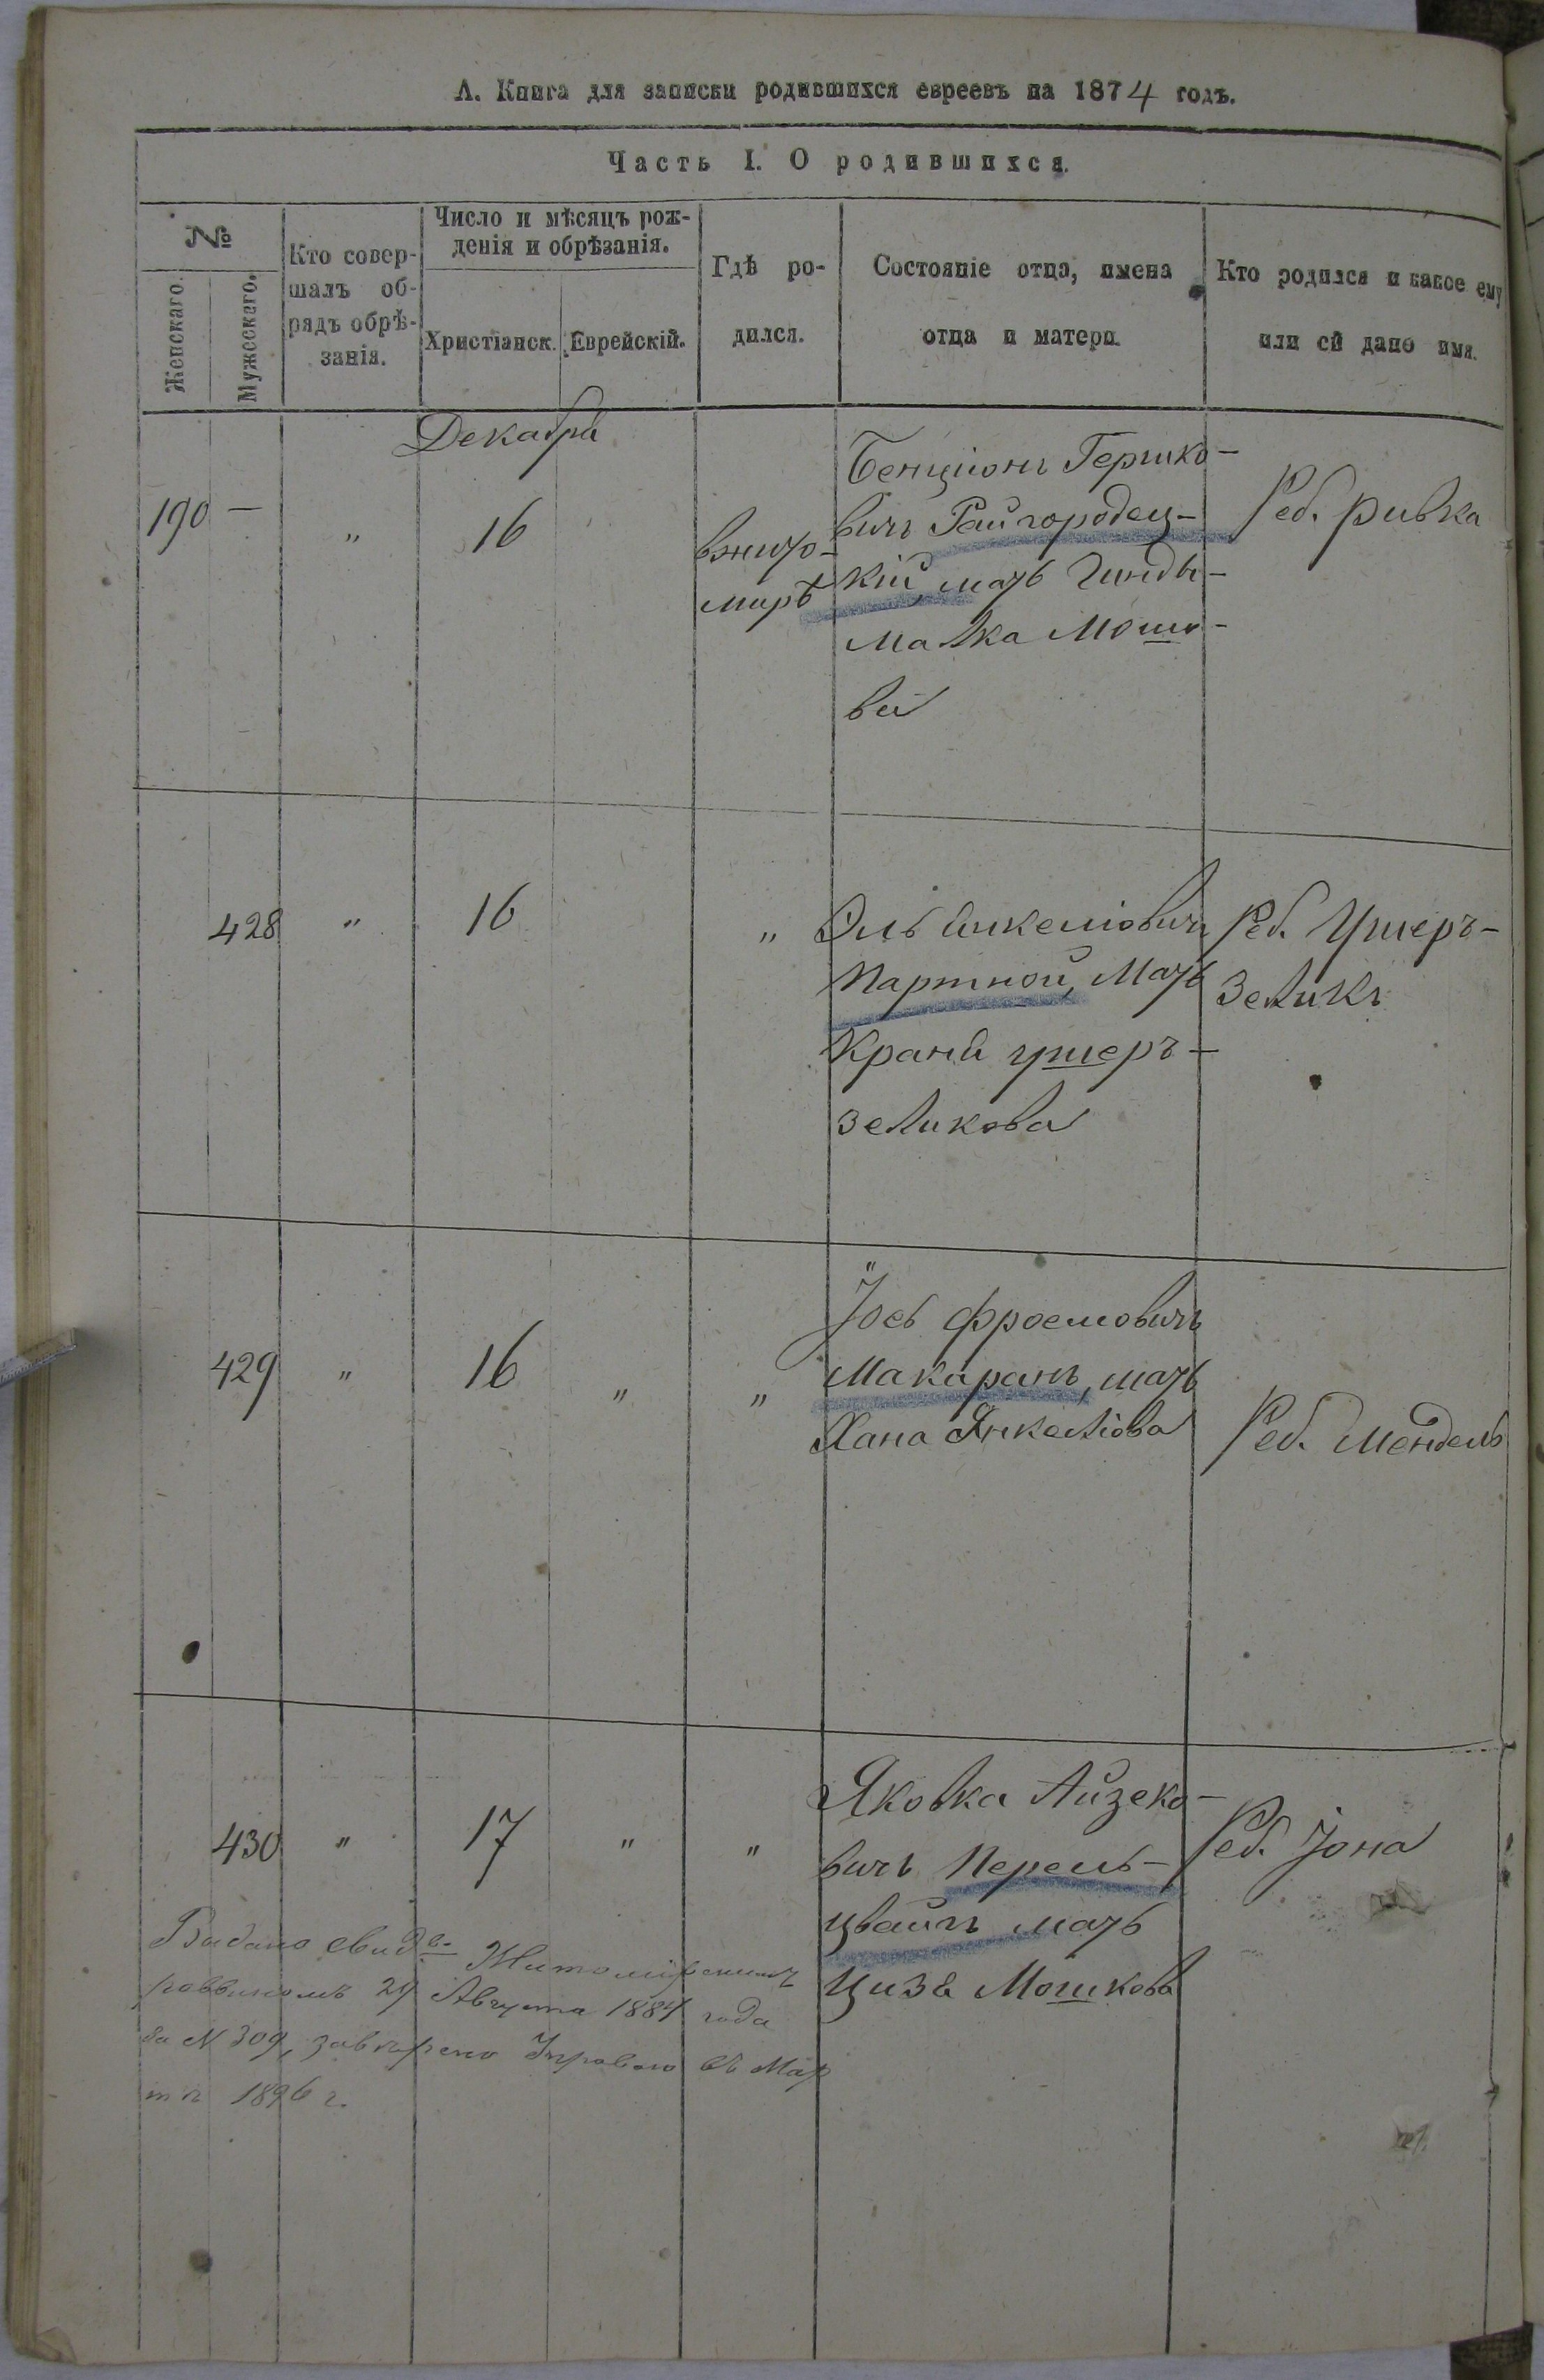 А. Книга для записки родившихся евреевъ на 1874 годъ.
Часть I. О родившихся.
№
Женскаго.
Мужескаго.
Кто совер-
шалъ об-
рядъ обрѣ-
занія.
Число и мѣсяцъ рож-
денія и обрѣзанія.
Христіанск.
Еврейскій.
Гдѣ ро-
дился.
Состояніе отца, имена
отца и матери.
Кто родился и какое ему
или ей дано имя.
Декабря
190 — " 16
вжито-
мирѣ
Бенціонъ Гершко-
вичъ Райгородец-
кій, мать Гинды-
Малка Мошо-
ва
Реб. Ривка
428 " 16 "
Эль Янкеліовичъ
Партной, Мать
Краня Ушеръ-
Зеликова
Реб. Ушеръ-
Зеликъ
429 " 16 " "
Іосъ Фроемовичъ
Макаранъ, мать
Хана Янкеліова
Реб. Мендель
430 " 17 " "
Яковка Айзеко-
вичъ Перель-
цвайгъ мать
Циза Мошкова
Реб. Іона
Видано свид-во Житомірскимъ
раввиномъ 29 Августа 1884 года
за N 309, завѣрено Управою въ Мар
тѣ 1896 г.